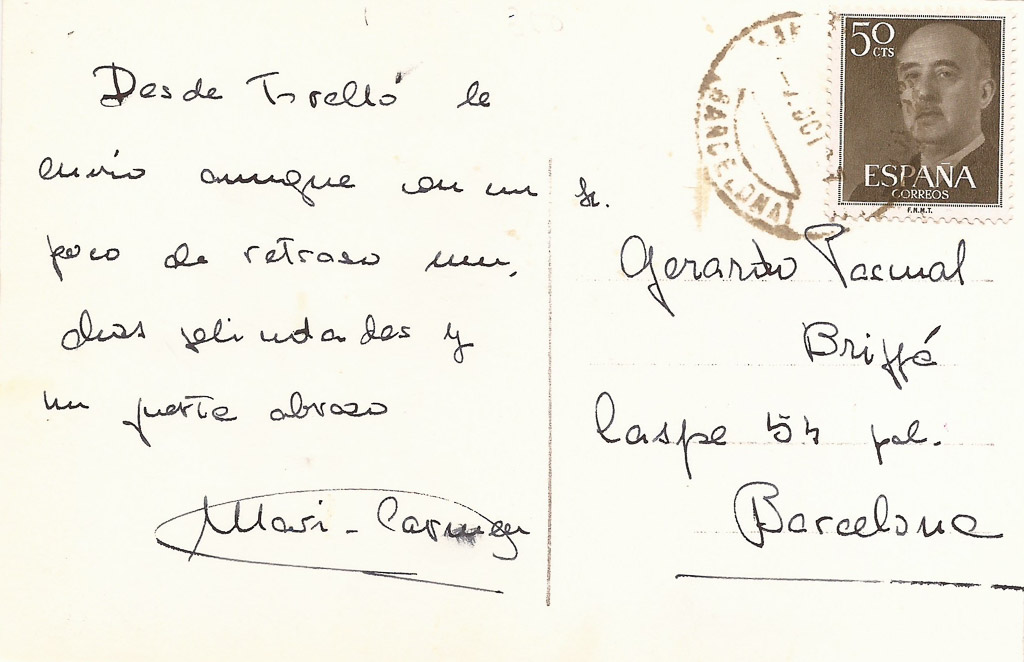 Desde Torelló le
envio aunque con un
poco de retraso mu,
chas felicidades y
un fuerte abrazo
Mari-Carmen
Sr.
Gerardo Pascual
Briffé
Caspe 54 pal.
Barcelona
50
CTS
ESPAÑA
CORREOS
F.N.M.T.
BARCELONA
OCT